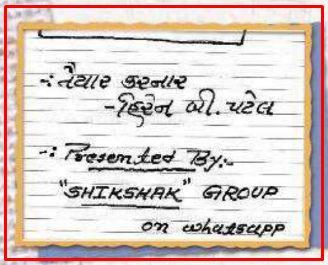 -: તૈયાર કરનાર
- હિરેન બી. પટેલ
-: Presented By:-
"SHIKSHAK" GROUP
on whatsapp